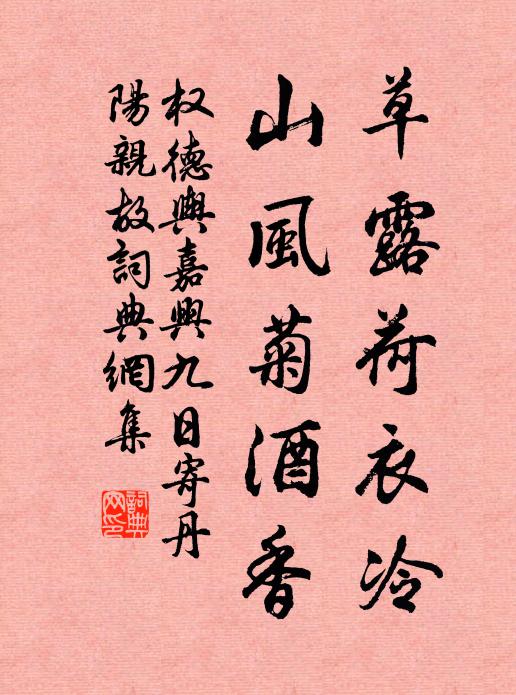 草露荷衣冷
山風菊酒香
权德輿嘉興九日寄丹
陽親故詞典網集
詞典网印